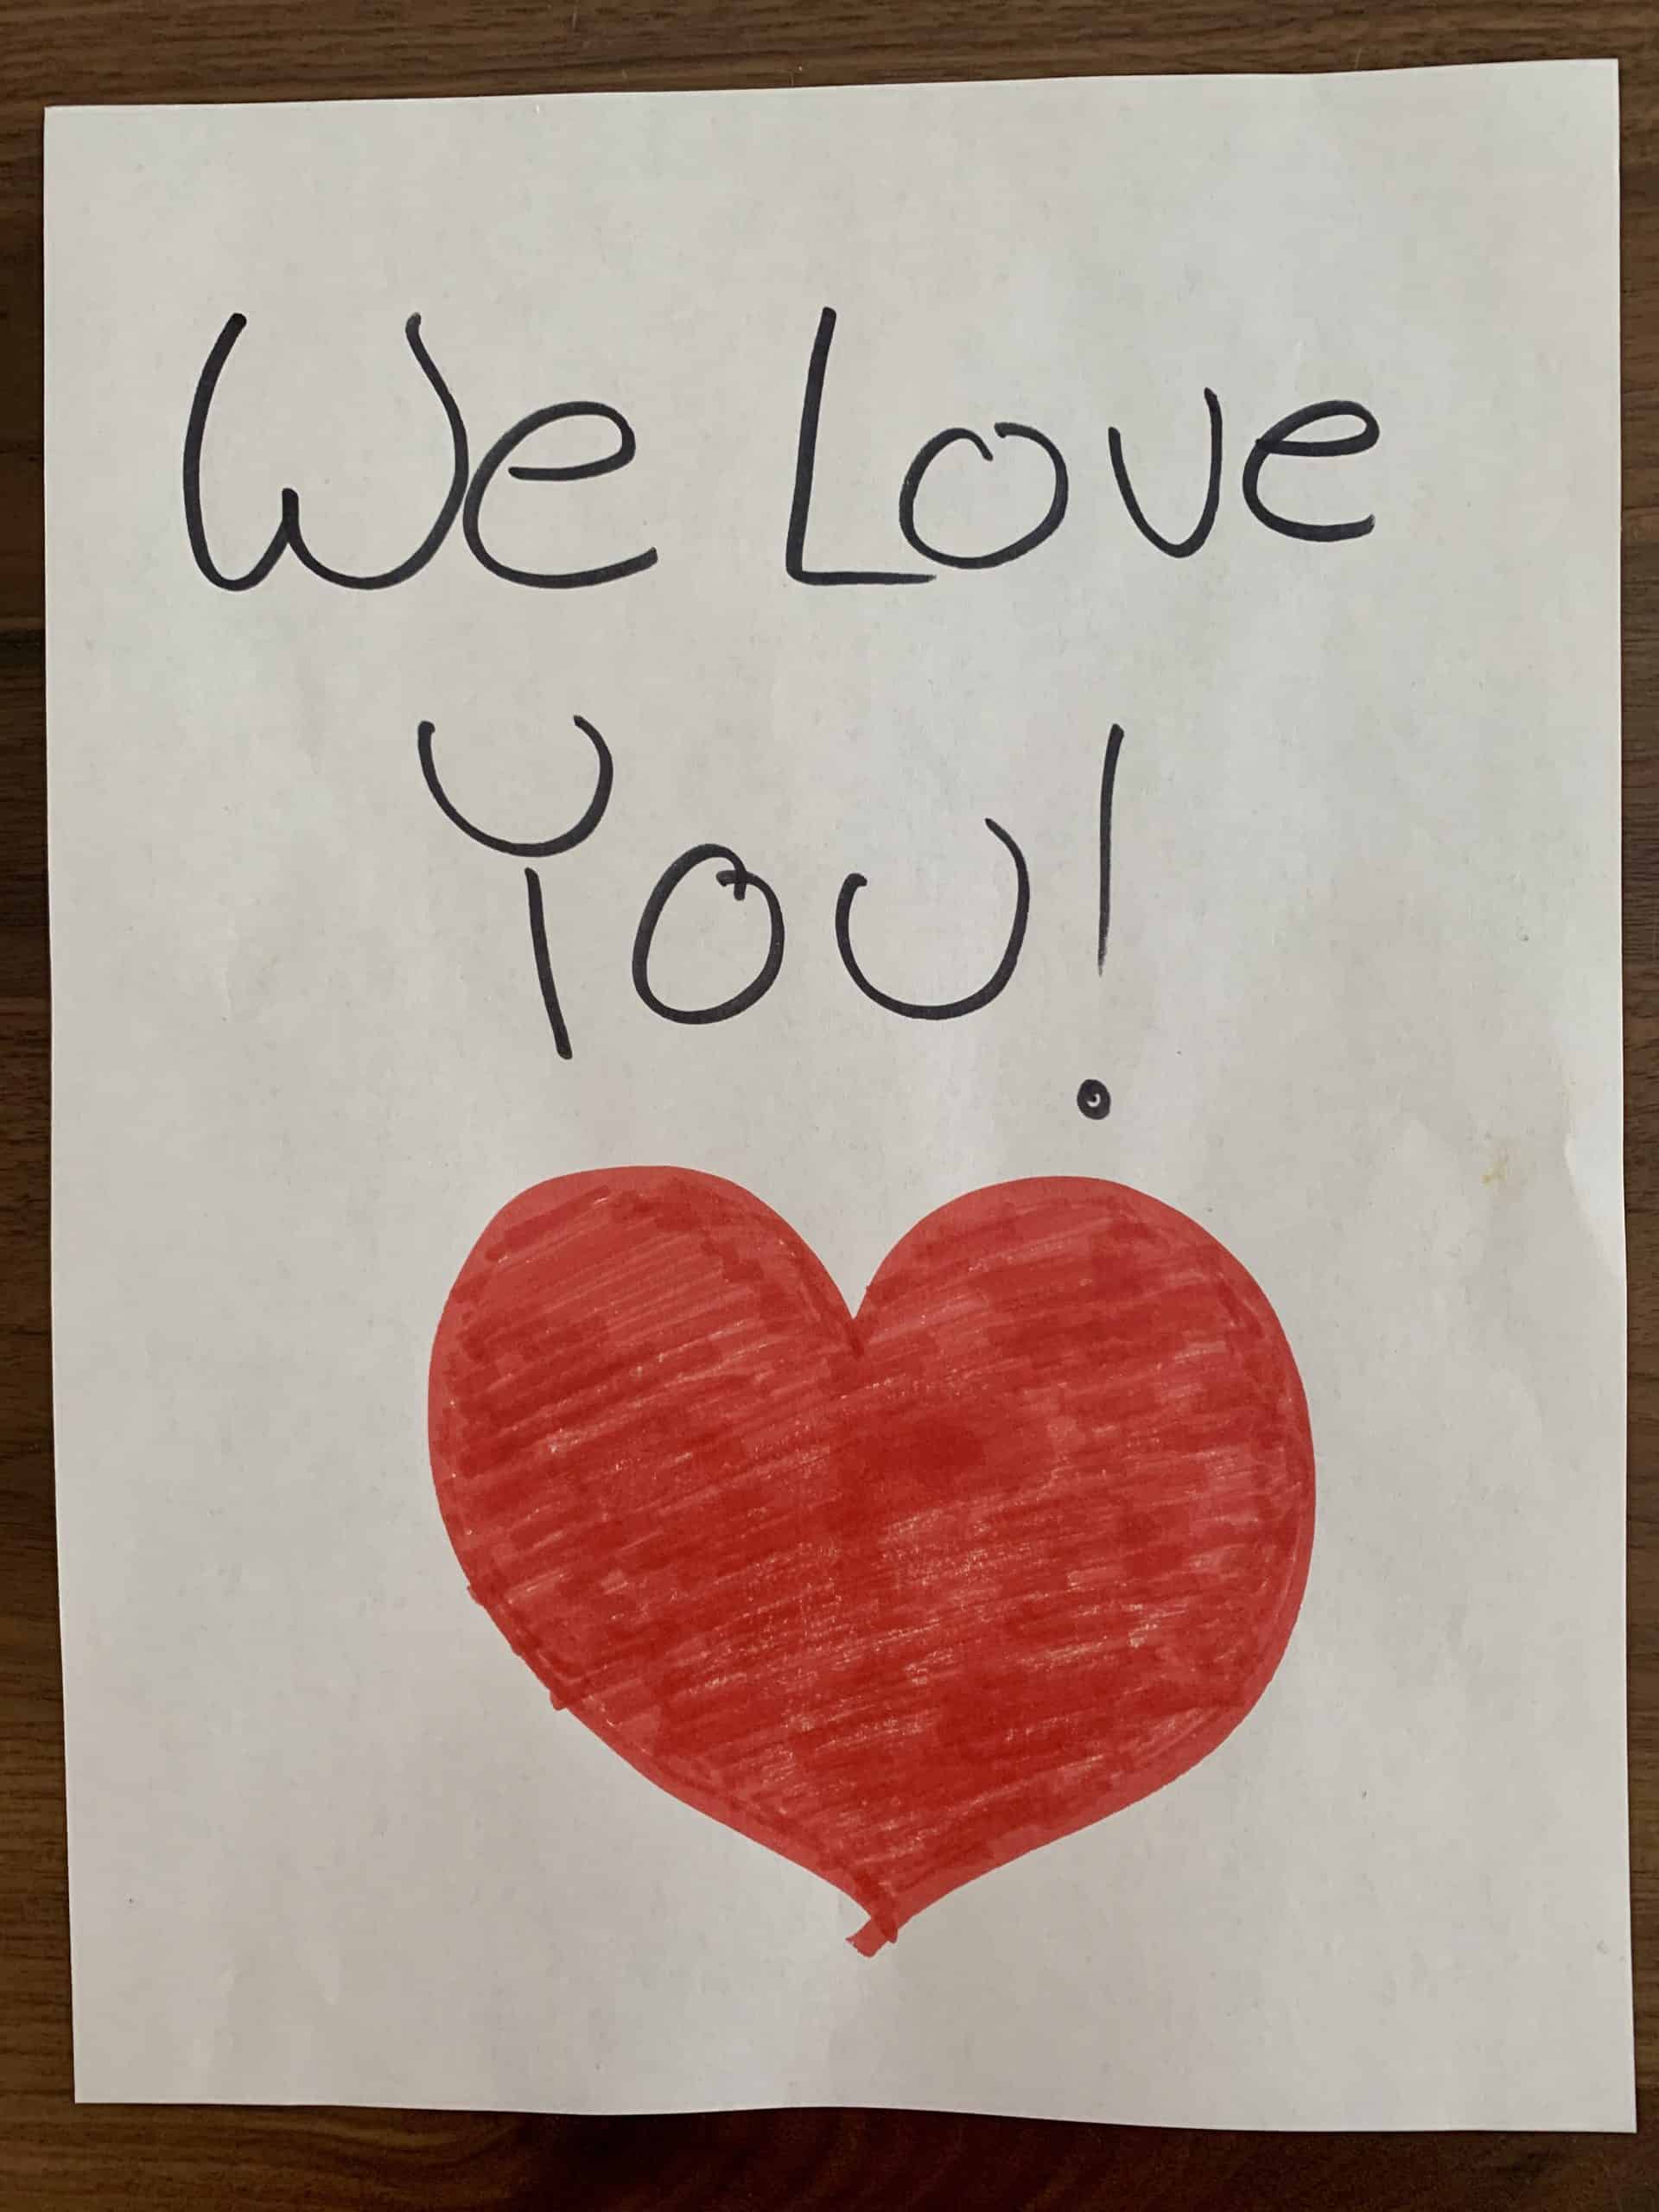 We Love
You!